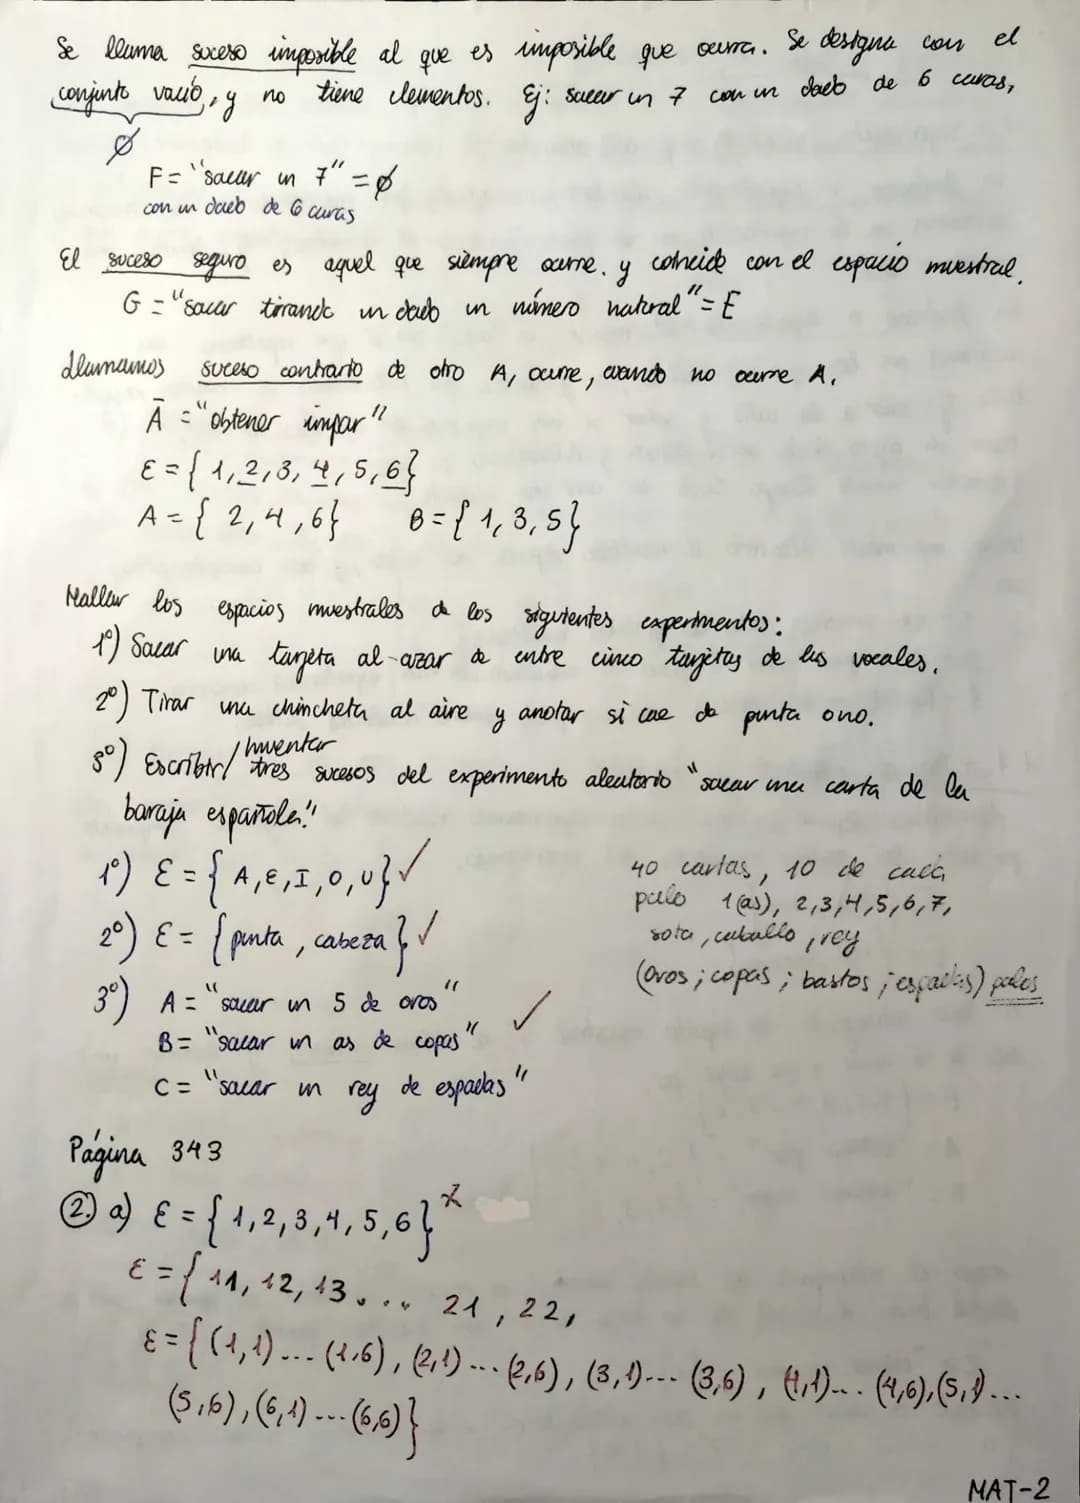 Se llama suceso imposible al que es imposible que ocurra. Se designa con el
conjunto vacío, y no tiene elementos. Ej: sacar un 7 con un dado de 6 caras,
∅
F = "sacar un 7" = ∅
con un dado de 6 caras
El suceso seguro es aquel que siempre ocurre. y coincide con el espacio muestral.
G = "sacar tirando un dado un número natural" = E
Llamamos suceso contrario de otro A, ocurre, cuando no ocurre A.
Ā = "obtener impar"
E = { 1, 2, 3, 4, 5, 6}
A = { 2, 4, 6} B = { 1, 3, 5}
Hallar los espacios muestrales de los siguientes experimentos:
1º) Sacar una tarjeta al azar de entre cinco tarjetas de las vocales.
2º) Tirar una chincheta al aire y anotar si cae de punta o no.
3º) Escribir/inventar tres sucesos del experimento aleatorio "sacar una carta de la
baraja española."
1º) E = { A, E, I, O, U} ✓
2º) E = { punta, cabeza } ✓
3º) A = "sacar un 5 de oros"
B = "sacar un as de copas" ✓
C = "sacar un rey de espadas"
40 cartas, 10 de cada
palo 1(as), 2,3,4,5,6,7,
sota, caballo, rey
(oros; copas; bastos; espadas) palos
Página 343
2. a) E = { 1, 2, 3, 4, 5, 6} x
E = { 11, 12, 13.... 21, 22,
E = { (1,1)... (1,6), (2,1)... (2,6), (3,1)... (3,6), (4,1)... (4,6), (5,1)...
(5,6), (6,1)... (6,6)}
MAT-2